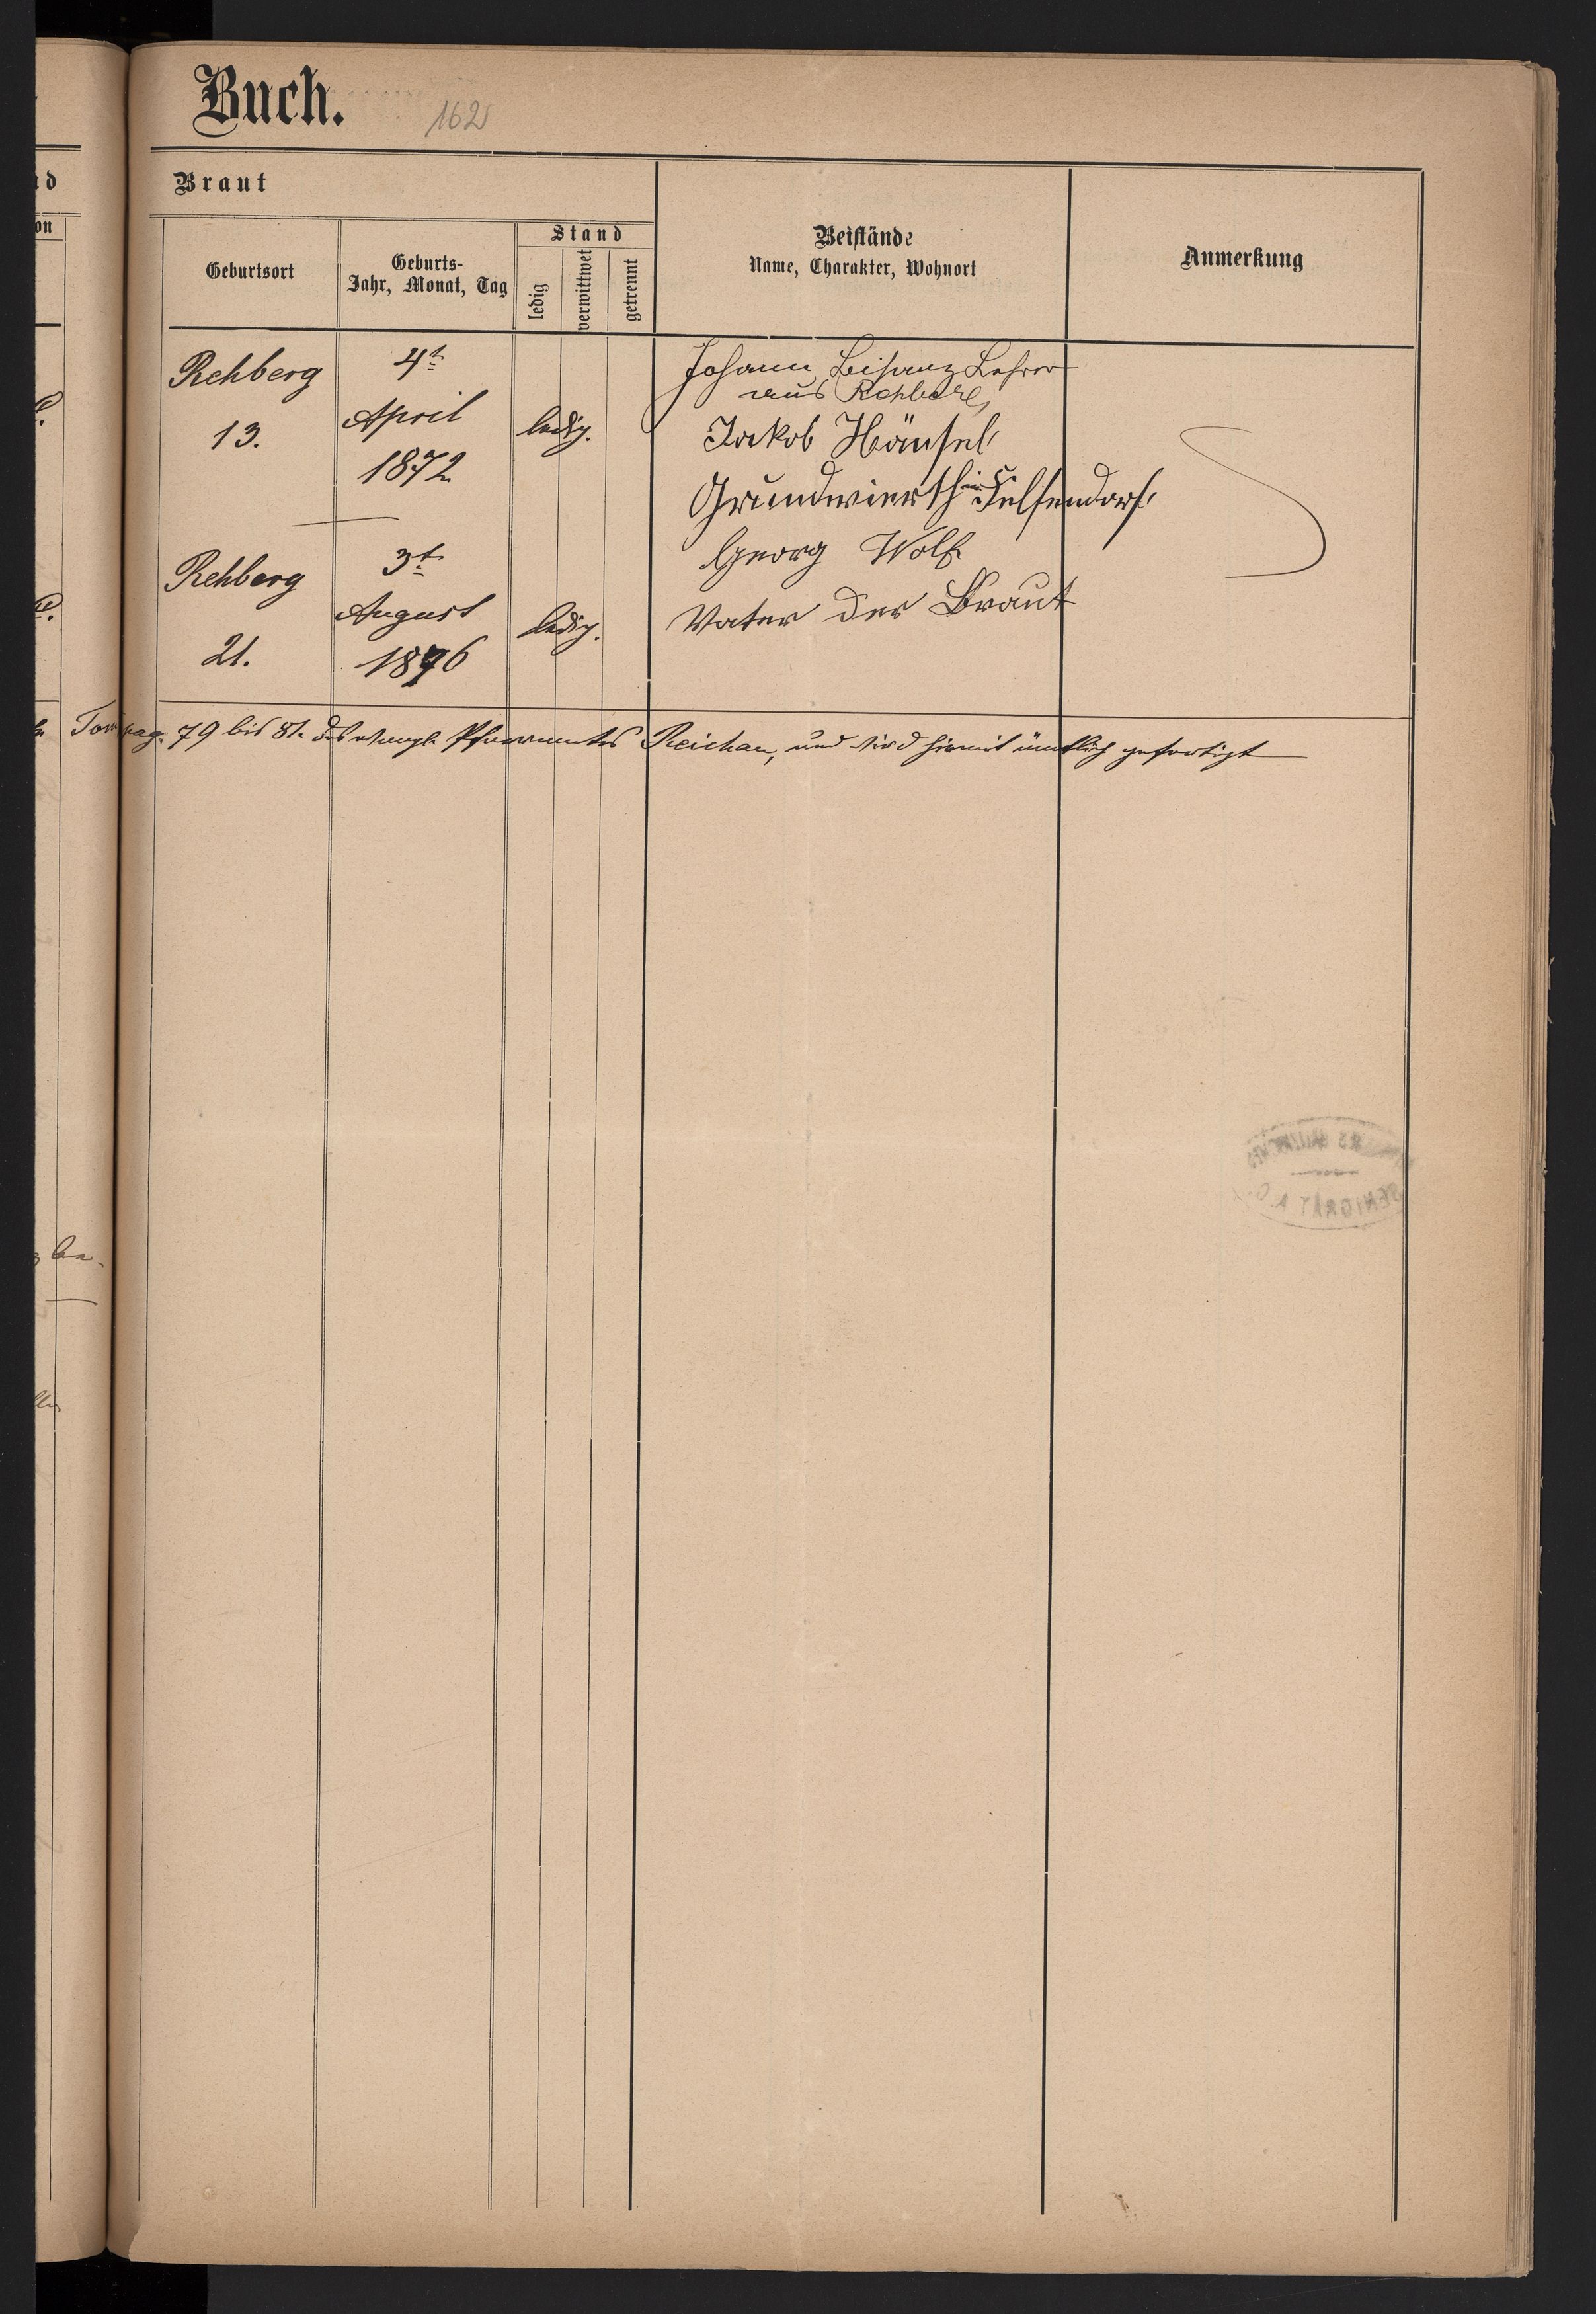 Buch.
162
Braut
Geburtsort
Geburts-
Jahr, Monat, Tag
Stand
ledig
verwittwet
getrennt
Beistände
Name, Charakter, Wohnort
Anmerkung
Rehberg
13.
4t
April
1872
ledig.
Johann Leisanz Lehrer
aus Rehberg
Jakob Hänsel
Grundwierth in Felsendorf
Rehberg
21.
3t
August
1876
ledig.
Georg Wolf
Vater der Braut
Tom pag. 79 bis 81. des evangl. Pfarramtes Reichau, und wird hiermit ämtlich gefertigt
SENIORAT A. C.